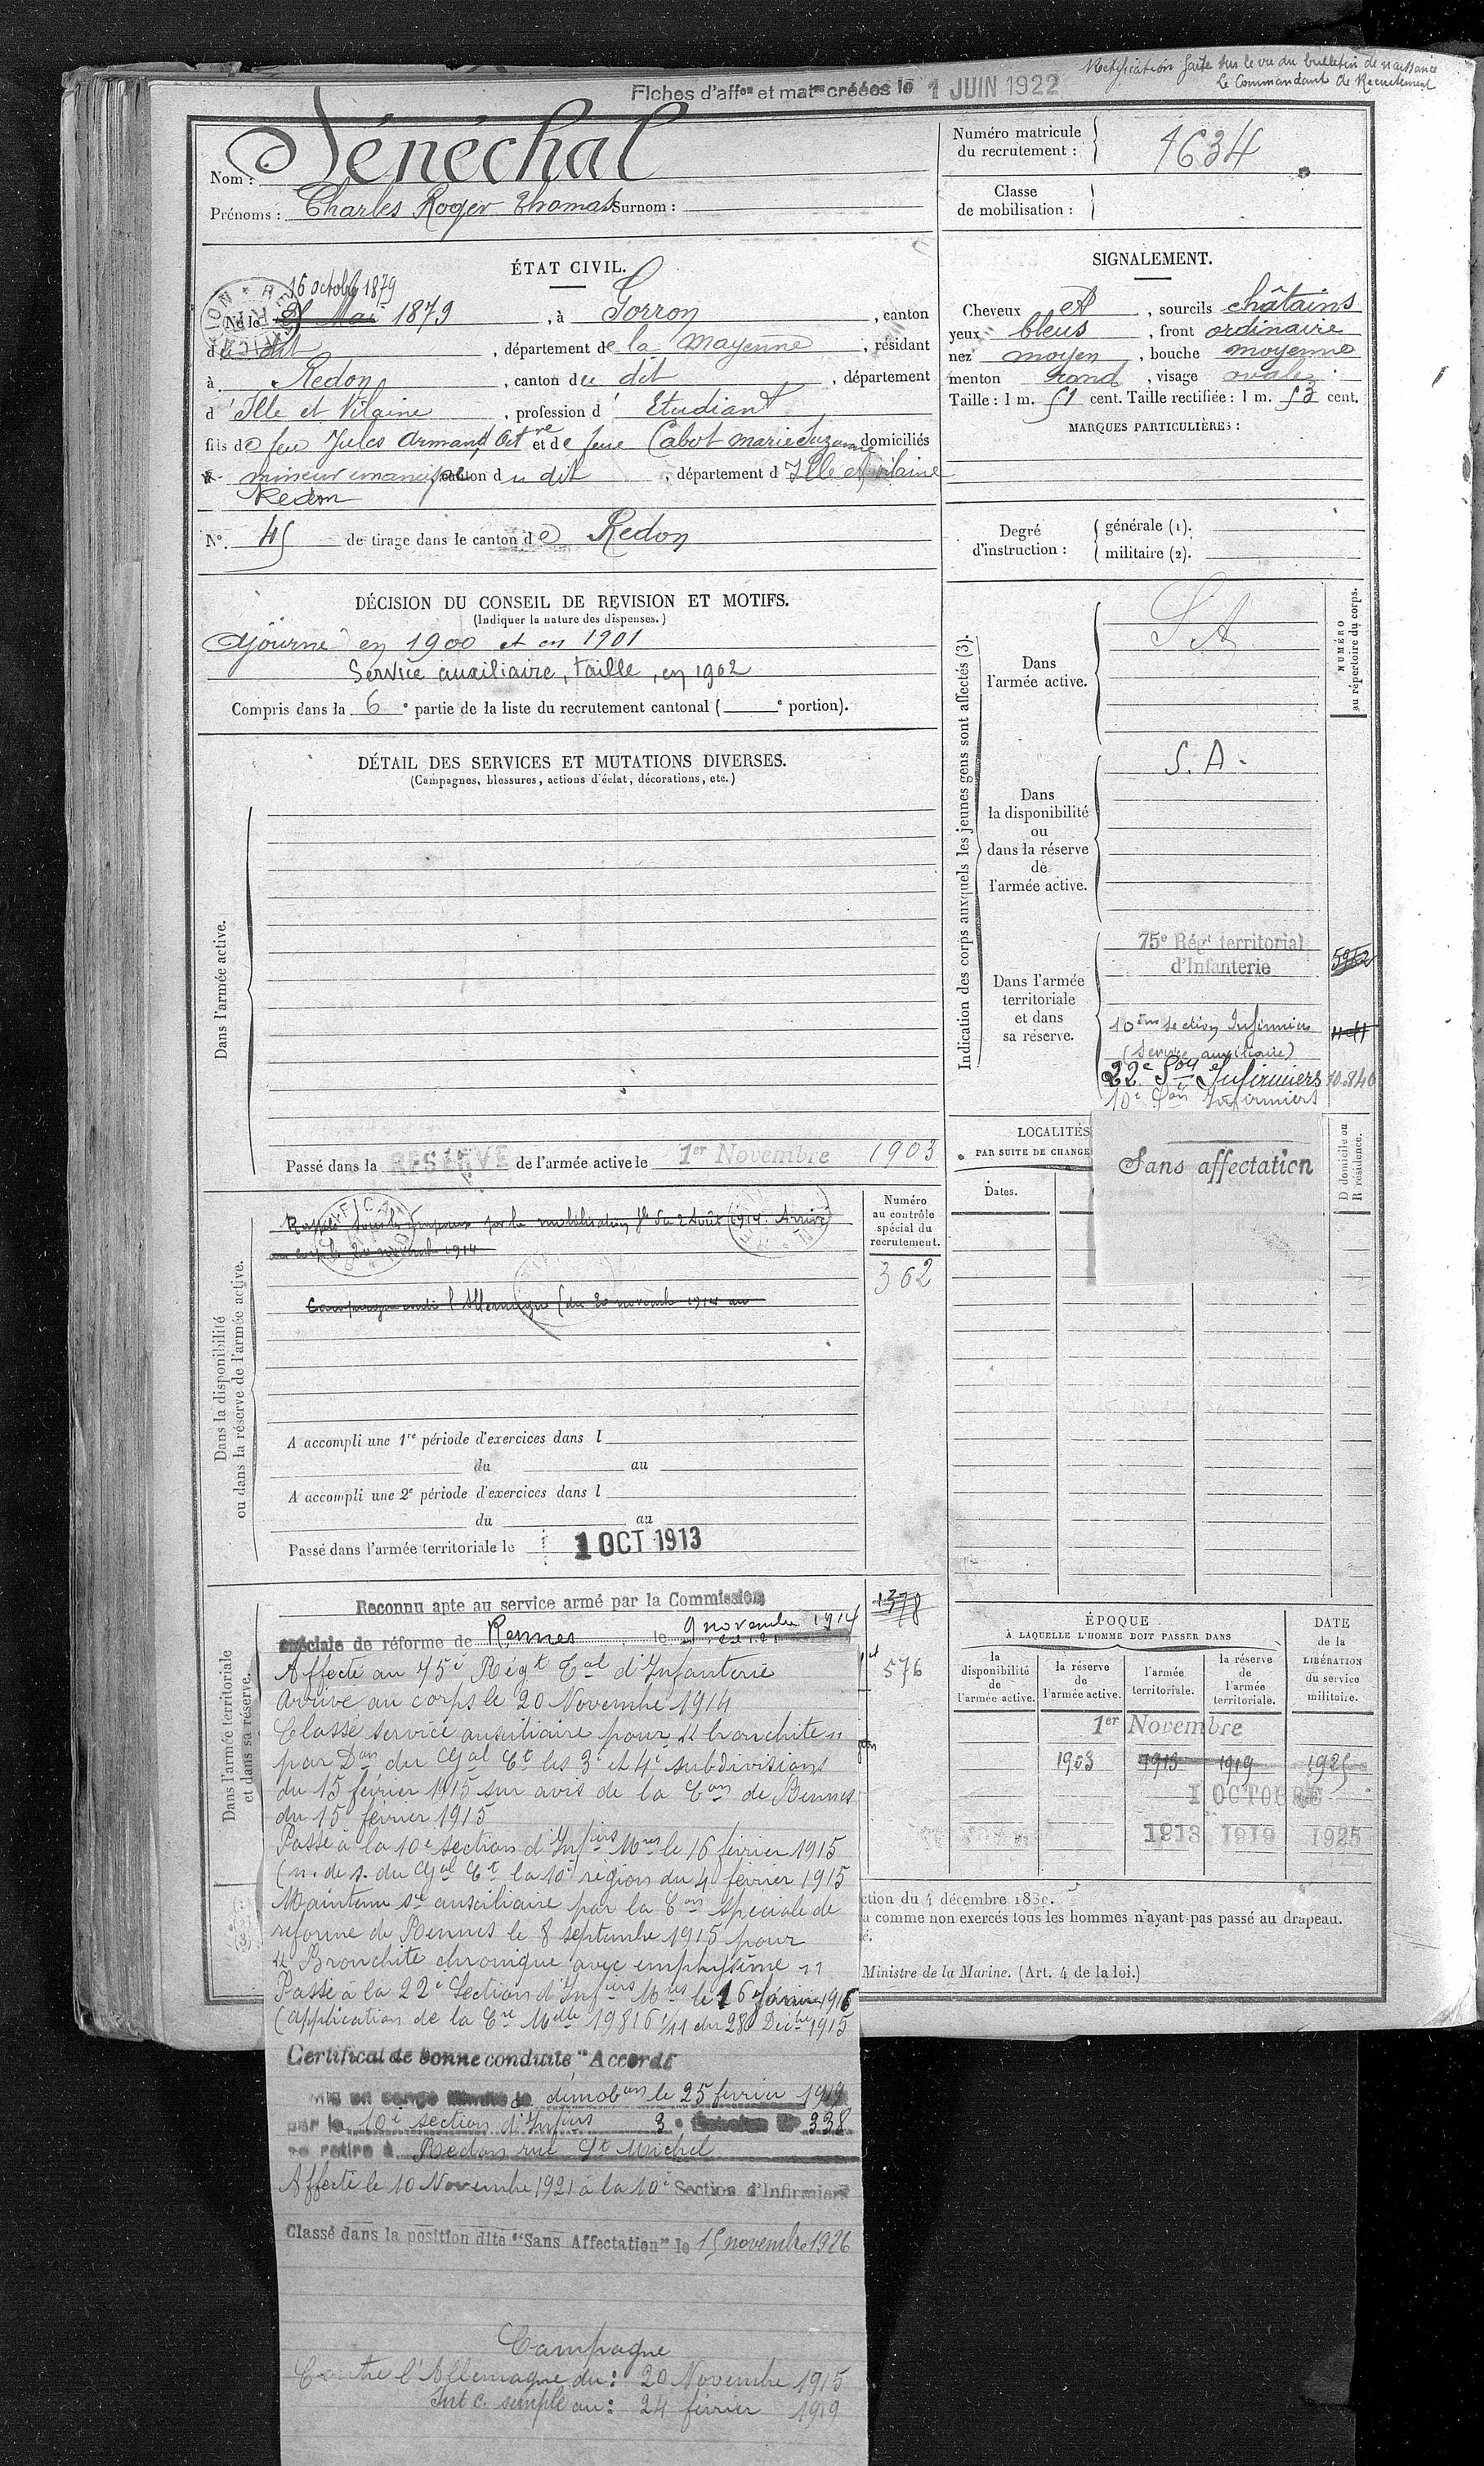 Rectification faite sur le vu du bulletin de naissance
Le Commandant de Recrutement
Fiches d'aff^on et mat^es créées le 1 JUIN 1922
Nom : Sénéchal
Prénoms : Charles Roger Thomas Surnom :
Numéro matricule du recrutement : 1634
Classe de mobilisation :
ÉTAT CIVIL.
16 octobre 1879
Né le Mai 1879, à Gorron, canton
du dit, département de la Mayenne, résidant
à Redon, canton du dit, département
d'Ille et Vilaine, profession d'Etudiant
fils de feu Jules Armand, et de feue Cabot Marie Suzanne domiciliés
à mineur émancipé canton du dit, département d'Ille et Vilaine
Redon
N° 45 de tirage dans le canton de Redon
SIGNALEMENT.
Cheveux et, sourcils châtains
yeux bleus, front ordinaire
nez moyen, bouche moyenne
menton rond, visage ovale
Taille : 1 m. 51 cent. Taille rectifiée : 1 m. 53 cent.
MARQUES PARTICULIÈRES :
Degré d'instruction : générale (1).
militaire (2).
DÉCISION DU CONSEIL DE REVISION ET MOTIFS.
(Indiquer la nature des dispenses.)
Ajourné en 1900 et en 1901
Service auxiliaire, taille, en 1902
Compris dans la 6^e partie de la liste du recrutement cantonal ( ^e portion).
DÉTAIL DES SERVICES ET MUTATIONS DIVERSES.
(Campagnes, blessures, actions d'éclat, décorations, etc.)
Dans l'armée active.
Passé dans la RÉSERVE de l'armée active le 1er Novembre 1903
Indication des corps auxquels les jeunes gens sont affectés (3).
NUMÉRO au répertoire du corps.
Dans l'armée active.
S A
Dans la disponibilité ou dans la réserve de l'armée active.
S. A.
Dans l'armée territoriale et dans sa réserve.
75^e Rég^t territorial
d'Infanterie
5962
10^ème section Infirmiers
(Service auxiliaire)
22^e S^on Infirmiers 10.840
10^e S^on Infirmiers
LOCALITÉS
PAR SUITE DE CHANGE
Dates.
D domicile ou
R résidence.
Sans affectation
Dans la disponibilité
ou dans la réserve de l'armée active.
Numéro au contrôle spécial du recrutement.
362
Rappelé sous les drapeaux par la mobilisation du 2 Août 1914. Arrivé
au corps le 20 novembre 1914
Campagne contre l'Allemagne (du 20 novemb 1914 au
A accompli une 1^re période d'exercices dans l
du au
A accompli une 2^e période d'exercices dans l
du au
Passé dans l'armée territoriale le 1 OCT 1913
Dans l'armée territoriale
et dans sa réserve.
1378
576
Reconnu apte au service armé par la Commission
spéciale de réforme de Rennes le 9 novembre 1914
Affecté au 75^e Rég^t T^al d'Infanterie
Arrivé au corps le 20 Novembre 1914
Classé service auxiliaire pour "bronchite"
par D^on du G^al C^t les 3^e et 4^e subdivisions
du 15 février 1915 sur avis de la C^on de Rennes
du 15 février 1915
Passé à la 10^e section d'Inf^iers M^res le 16 février 1915
(n. de s. du G^al C^t la 10^e région du 4 février 1915
Maintenu s^ce auxiliaire par la C^on Spéciale de
réforme de Rennes le 8 septembre 1915 pour
"Bronchite chronique avec emphysème"
Passé à la 22^e Section d'Inf^iers M^res le 16 1916
(application de la C^re M^elle 19816 1/11 du 28 Décbre 1915
Certificat de bonne conduite "Accordé
Mis en congé démob^on le 25 février 1919
par la 10^e section d'Inf^iers 3^e 338
se retire à Redon rue St Michel
Affecté le 10 Novembre 1921 à la 10^e Section d'Infirmiers
Classé dans la position dite "Sans Affectation" le 15 novembre 1926
Campagne
Contre l'Allemagne du : 20 Novembre 1915
Int c. simple au : 24 février 1919
ÉPOQUE
À LAQUELLE L'HOMME DOIT PASSER DANS
DATE de la LIBÉRATION du service militaire.
la disponibilité de l'armée active.
la réserve de l'armée active.
l'armée territoriale.
la réserve de l'armée territoriale.
1er Novembre
1903 1913 1919 1925
1 OCTOBRE
1913 1919 1925
ction du 4 décembre 1889.
comme non exercés tous les hommes n'ayant pas passé au drapeau.
Ministre de la Marine. (Art. 4 de la loi.)